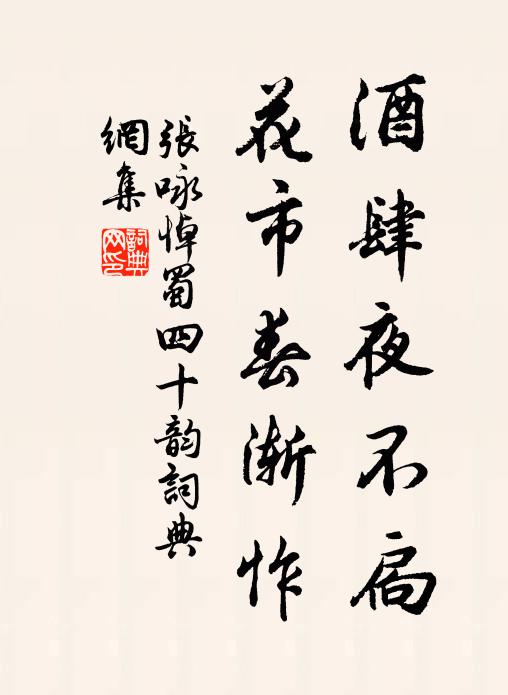 酒肆夜不扃
花市春漸怍
張咏悼蜀四十韵詞典
網集
詞典
网印